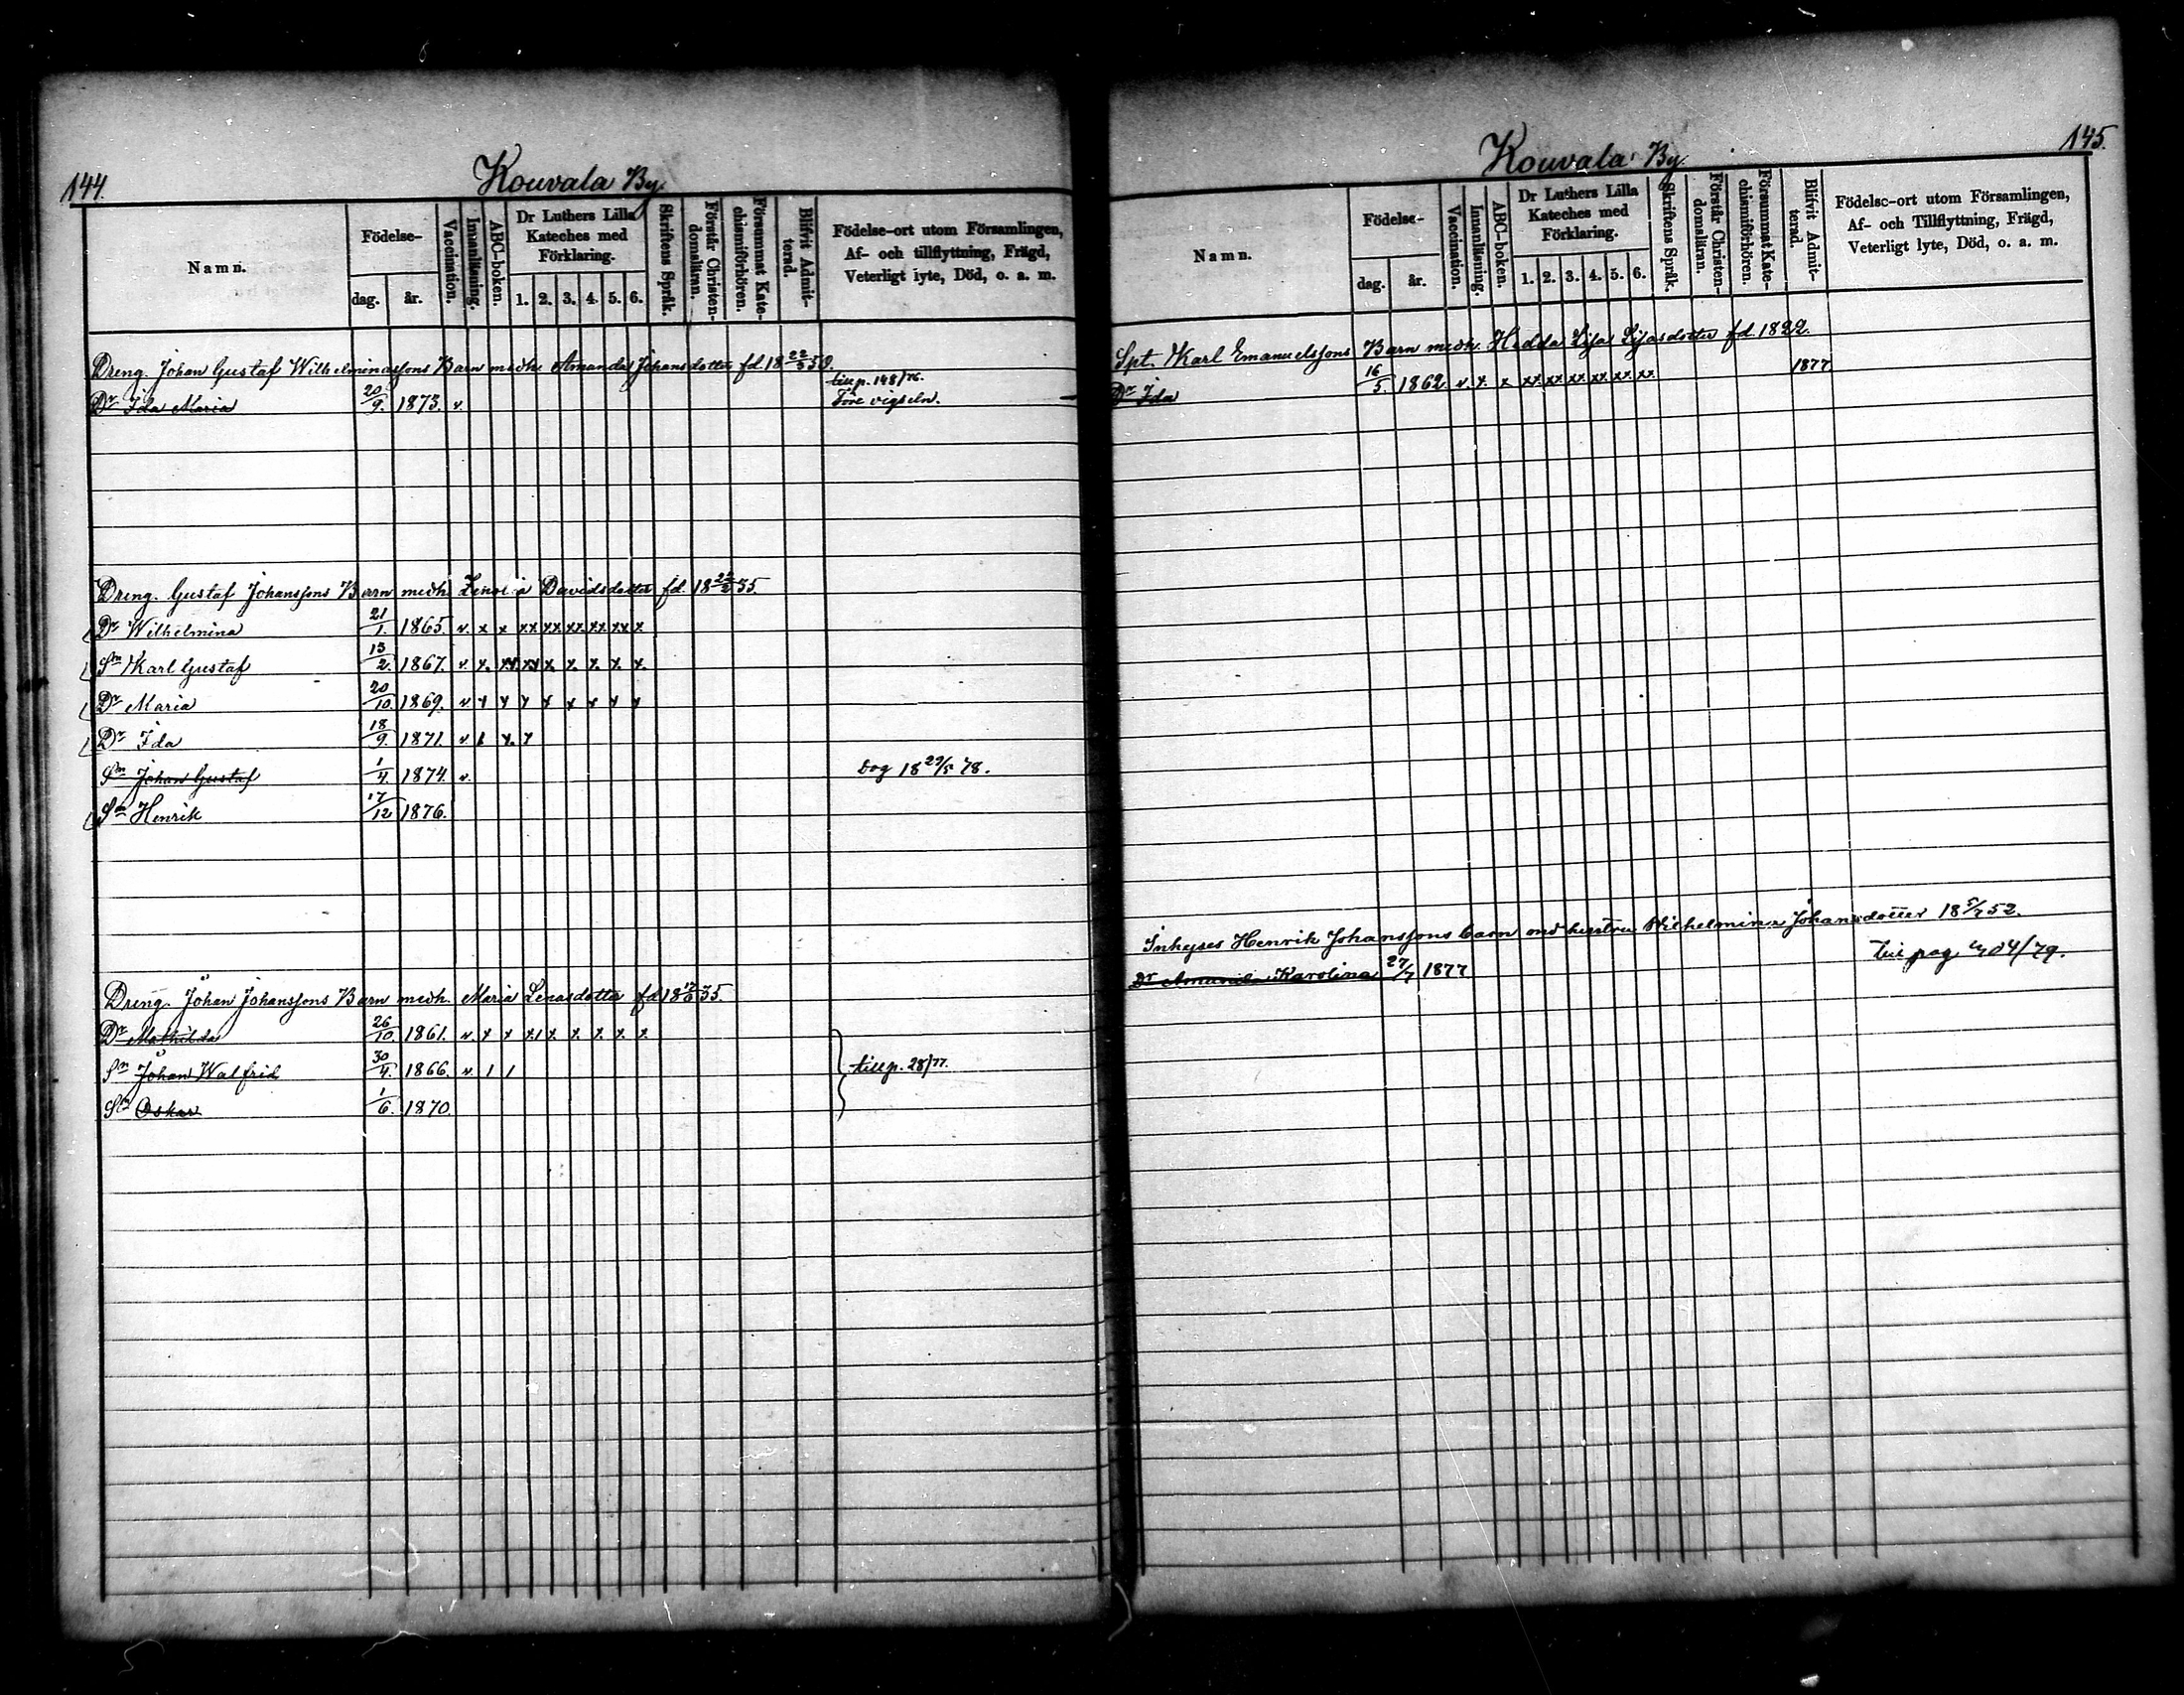 144.
Kouvala By.
Namn.
Födelse-
dag.
år.
Vaccination.
Innanläsning.
ABC-boken.
Dr Luthers Lilla
Kateches med
Förklaring.
1. 2. 3. 4. 5. 6.
Skriftens Språk.
Förstår Christen-
domsläran.
Försummat Kate-
chismiförhören.
Blifvit Admit-
terad.
Födelse-ort utom Församlingen,
Af- och tillflyttning, Frägd,
Veterligt lyte, Död, o. a. m.
Dreng. Johan Gustaf Wilhelminassons Barn medh. Amanda Johansdotter fd. 18 22/3 50.
till p. 148/76.
Dr Ida Maria 20/9. 1873. v. Före vigseln.
Dreng. Gustaf Johanssons Barn medh. Davidsdotter fd. 18 22/2 35.
Dr Wilhelmina 21/1. 1865. v. x x xx xx xx xx xx x
Sn Karl Gustaf 13/2. 1867. v. x. xx xx x x. x. x. x.
Dr Maria 20/10. 1869. v. x x x x x x x x
Dr Ida 18/9. 1871. v. x. x
Sn Johan Gustaf 1/4 1874. v. Dog 18 29/5 78.
Sn Henrik 17/12 1876.
Dreng. Johan Johanssons Barn medh. Maria Lenasdotter fd. 18 35.
Dr Mathilda 26/10. 1861. v. x x x x. x x. x. x.
Sn Johan Walfrid 30/4. 1866. v. 1 1 till p. 28/77.
Sn Oskar 1/6. 1870.
145.
Kouvala By.
Namn.
Födelse-
dag.
år.
Vaccination.
Innanläsning.
ABC-boken.
Dr Luthers Lilla
Kateches med
Förklaring.
1. 2. 3. 4. 5. 6.
Skriftens Språk.
Förstår Christen-
domsläran.
Försummat Kate-
chismiförhören.
Blifvit Admit-
terad.
Födelse-ort utom Församlingen,
Af- och Tillflyttning, Frägd,
Veterligt lyte, Död, o. a. m.
Spt. Karl Emanuelssons Barn medh. Hedda Lisa Lisasdotter fd. 1822.
Dr Ida 16/5. 1862. v. x. x xx xx xx xx xx xx 1877
Inhyses Henrik Johanssons barn med hustru Wilhelmina Johansdotter 18 5/7 52.
Dr Amanda Karolina 27/7 1877 till pag 404/79.